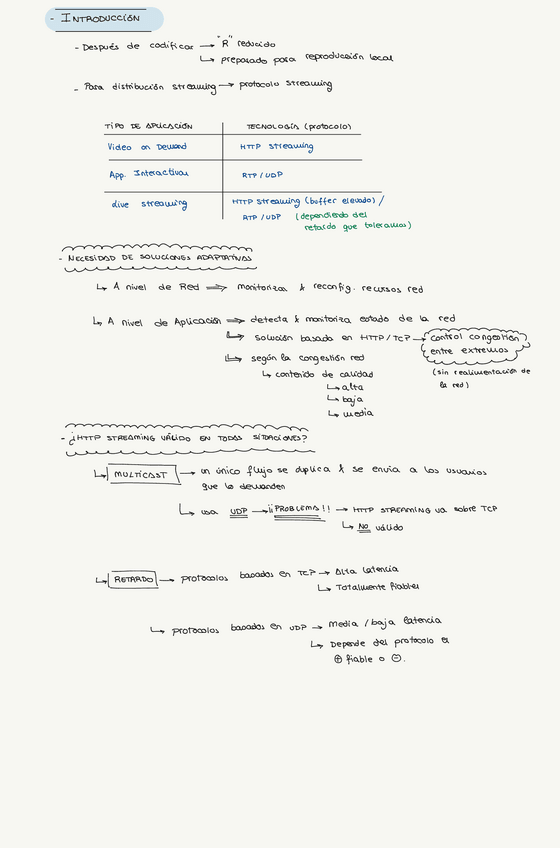 - INTRODUCCIÓN
- Después de codificar → "R" reducido
↳ preparado para reproducción local
- Para distribución streaming → protocolo streaming
TIPO DE APLICACIÓN TECNOLOGÍA (protocolo)
Video on Demand HTTP streaming
App. Interactiva RTP/UDP
Live streaming HTTP streaming (buffer elevado) /
RTP/UDP (dependiendo del
retardo que toleramos)
- NECESIDAD DE SOLUCIONES ADAPTATIVAS
↳ A nivel de Red ⇒ monitorizar & reconfig. recursos red
↳ A nivel de Aplicación ⇒ detecta & monitoriza estado de la red
↳ solución basada en HTTP/TCP → control congestión
entre extremos
(sin realimentación de
la red)
↳ según la congestión red
↳ contenido de calidad
↳ alta
↳ baja
↳ media
- ¿HTTP STREAMING VÁLIDO EN TODAS SITUACIONES?
↳ MULTICAST → un único flujo se duplica & se envia a los usuarios
que lo demanden
↳ usa UDP → ¡¡PROBLEMA!! → HTTP STREAMING va sobre TCP
↳ NO válido
↳ RETARDO → protocolos basados en TCP → Alta latencia
↳ Totalmente fiables
↳ protocolos basados en UDP → Media / baja latencia
↳ Depende del protocolo es
⊕ fiable o ⊖.